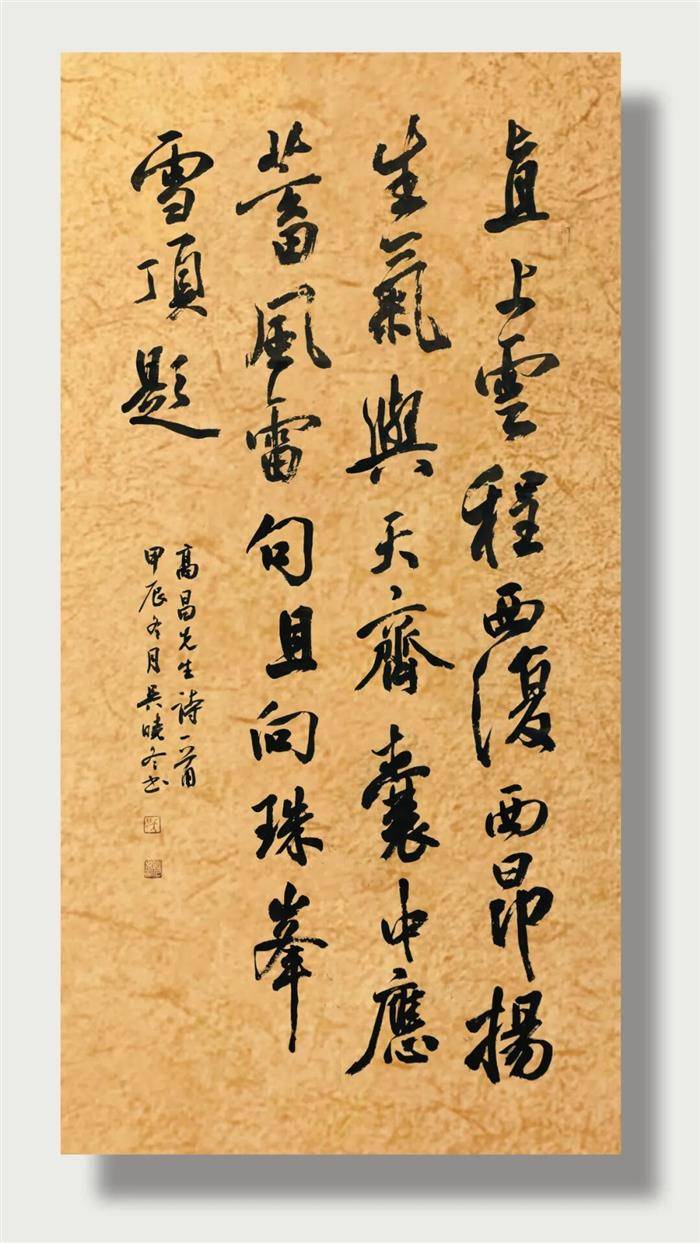 直上雲程西復西昂揚
生氣與天齊囊中應
蓄風雷句且向珠峯
雪頂題
高昌先生詩一首
甲辰冬月吳曉冬書